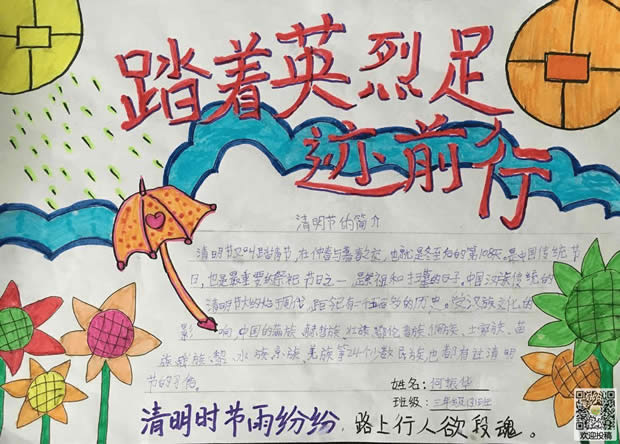 踏着英烈足
迹前行
清明节的简介
清明节又叫踏青节,在仲春与暮春之交,也就是冬至后的第108天,是中国传统节
日,也是最重要的祭祀节日之一,是祭祖和扫墓的日子,中国汉族传统的
清明节大约始于周代,距今已有二千五百多年的历史。受汉族文化的
影响,中国的满族、赫哲族、壮族、鄂伦春族、侗族、土家族、苗
族、瑶族、黎、水族、京族、羌族等24个少数民族,也都有过清明
节的习俗。
姓名:何振华
班级:
清明时节雨纷纷,路上行人欲段魂。
欢迎投稿